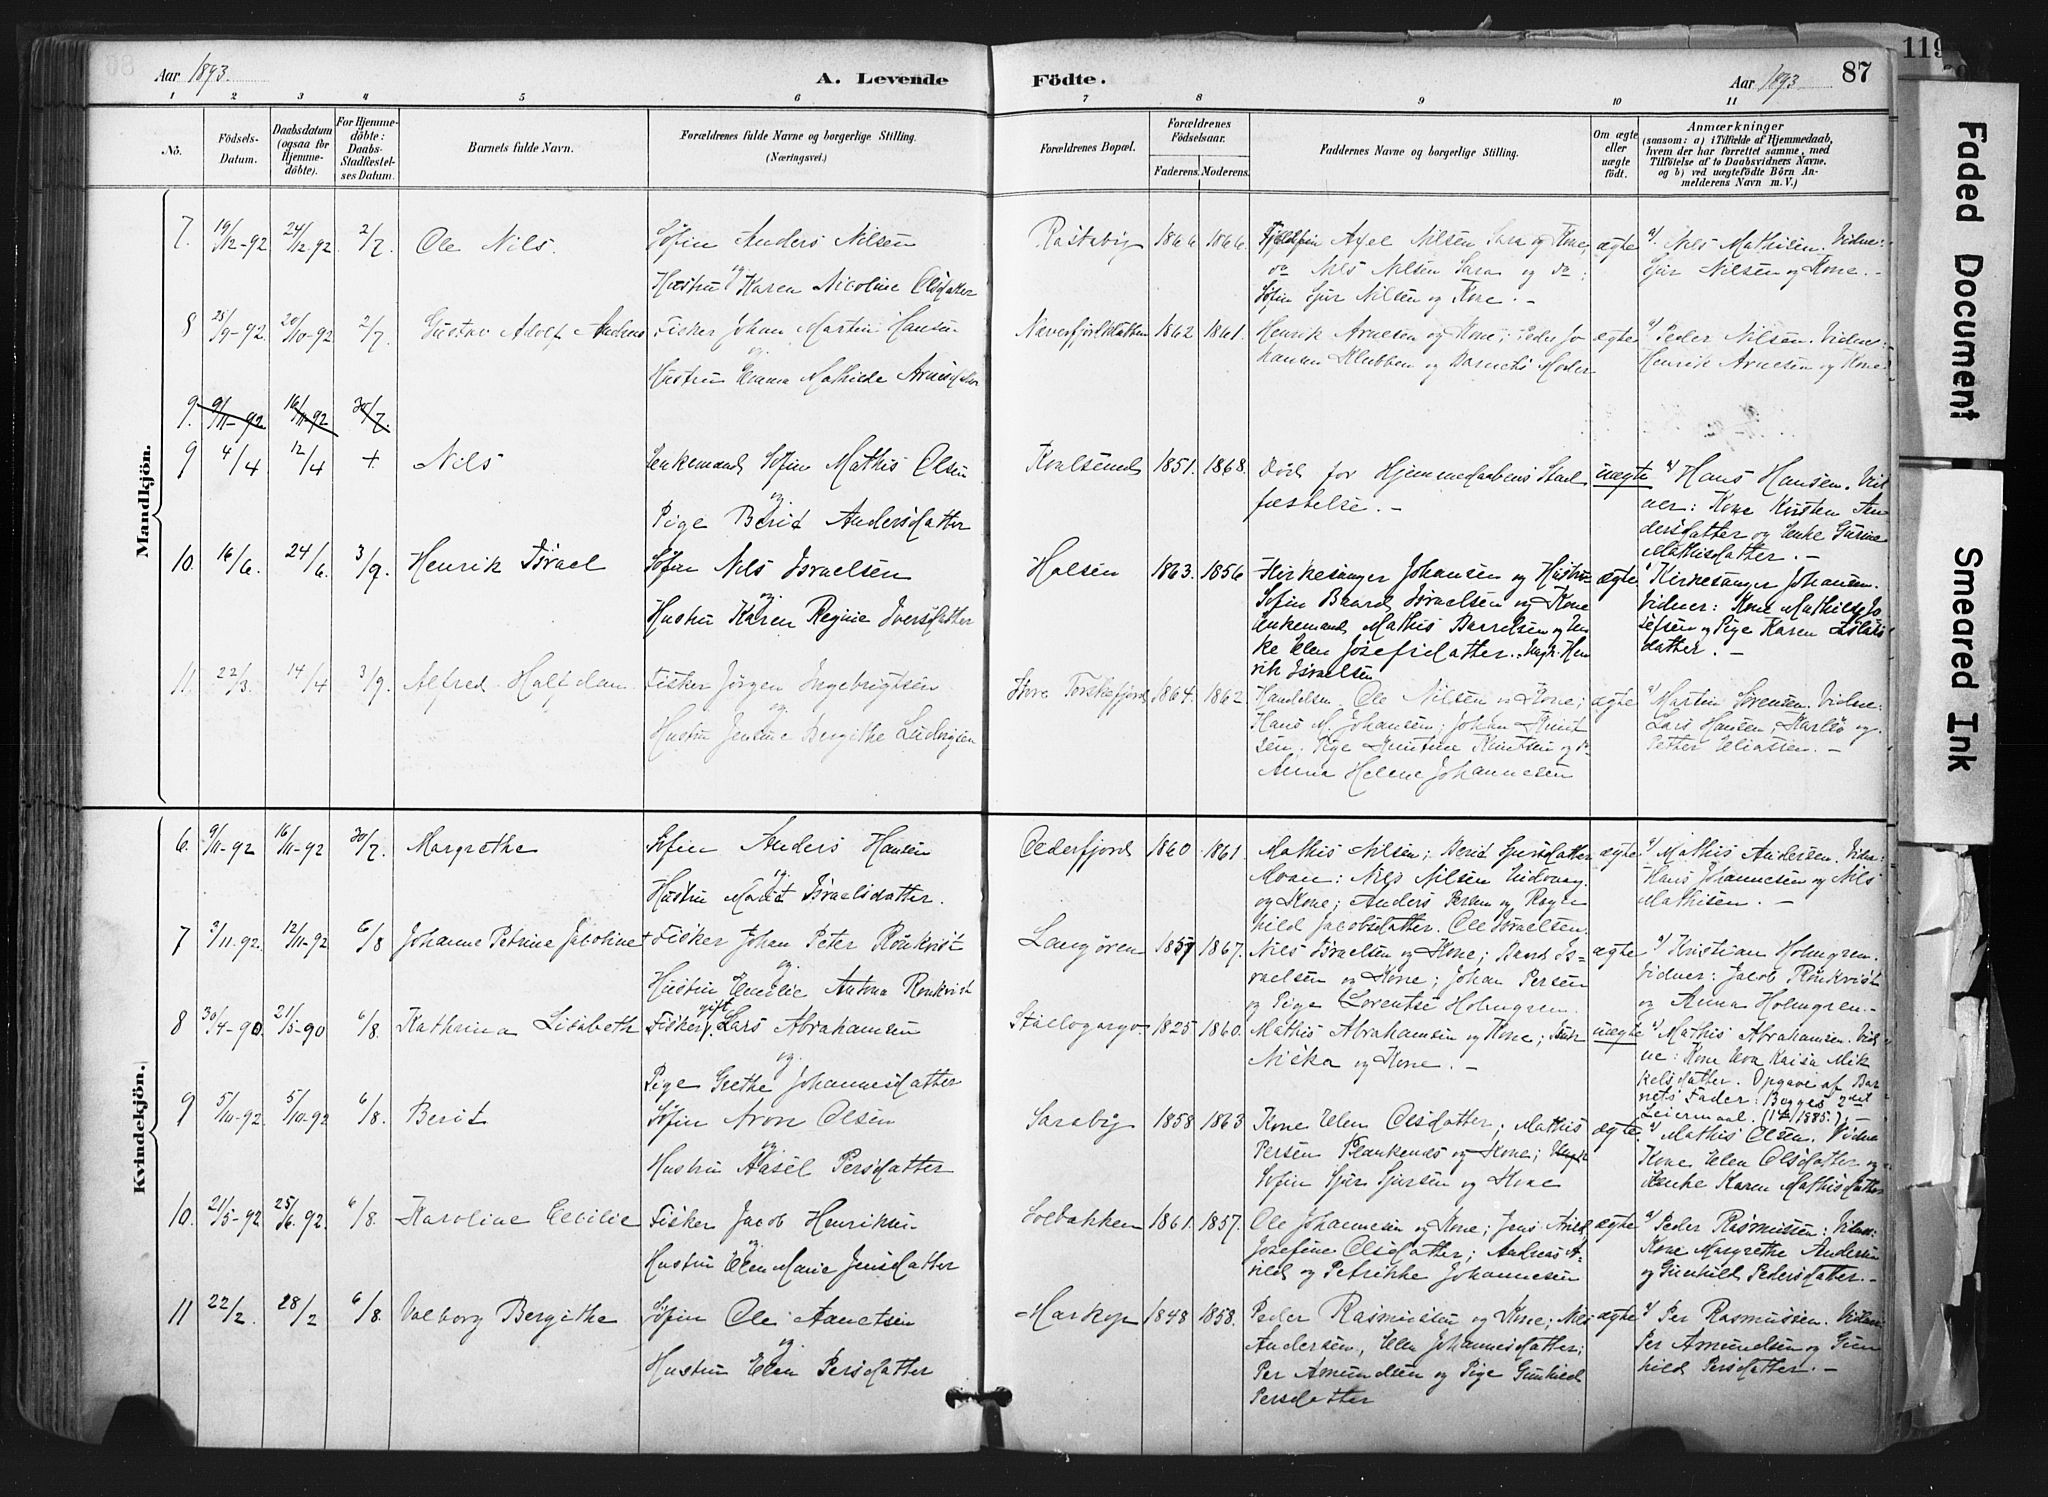 Aar 1893.
A. Levende
Födte.
Aar 1893
87
119
1 2 3 4 5 6 7 8 9 10 11
No.
Födsels-Datum.
Daabsdatum (ogsaa för Hjemme-döbte).
For Hjemme-döbte: Daabs-Stadfæstel-ses Datum.
Barnets fulde Navn.
Forældrenes fulde Navne og borgerlige Stilling. (Næringsvei.)
Forældrenes Bopæl.
Forældrenes Födselsaar.
Faderens. Moderens.
Faddernes Navne og borgerlige Stilling.
Om ægte eller uægte födt.
Anmærkninger
(saasom: a) i Tilfælde af Hjemmedaab, hvem der har forrettet samme, med Tilföielse af to Daabsvidners Navne. og b) ved uægtefödte Börn An-melderens Navn m. V.)
Mandkjön.
7. 19/12-92 24/12 92 2/7. Ole Nils.
Søfin Anders Nilsen
og
Hustru Karen Nicoline Olsdatter
1866 1866.
Axel Nilsen Sara og Kone,
do Nils Nilsen Sara og do;
Søfin Sjur Nilsen og Kone. -
ægte
a/. Nils Mathisen. Vidner:
Sjur Nilsen og Kone. -
8 25/9-92. 20/10-92 2/7. Gustav Adolf Andreas
Fisker Johan Martin Hansen
og
Hustru Emma Mathilde Arnesdatter
1862 1861.
Henrik Arnesen og Kone; Peder Jo
hansen Klubben og Barnets Moder
ægte
a/ Peder Nilsen. Vidner:
Henrik Arnesen og Kone
9. 9/11-92 16/11-92 30/7.
9 4/4 12/4 + Nils
Enkemand Søfin Mathis Olsen
og
Pige Berit Andersdatter
Kvalsund 1851. 1868.
Død før Hjemmedaabens Stad
fæstelse. -
uægte
a/ Hans Hansen. Vid
ner: Kone Kirsten An
dersdatter og Enke Gurine
Mathisdatter. -
10. 16/6. 24/6. 3/9. Henrik Israel
Søfin Nils Israelsen
og
Hustru Karen Regine Iversdatter
Halsen 1863. 1856
Kirkesanger Johansen og Hustru
Søfin Baard Israelsen og Kone
Enkemand Mathis Barrelsen og En
ke Elen Josefsdatter. Ungk. Hen
rik Israelsen
ægte
a/ Kirkesanger Johansen.
Vidner: Kone Mathilde Jo
sefsen og Pige Karen
datter. -
11. 22/3. 14/4 3/9. Alfred Halfdan
Fisker Jørgen Ingebrigtsen
og
Hustru Jensine Bergithe Ludvigsen
Store Torskefjord 1864. 1862.
Handelsm. Ole Nilsen og Kone;
Hans M. Johansen; Johan Knut
sen. Pige Knutine Knutsen og do
Anna Helene Johannesen
ægte
a/ Martin Sørensen. Vidner:
Lars Hansen, Karlsø og
Petter Eliassen. -
Kvindekjön.
6. 9/11-92 16/11-92 30/7. Margrethe
Søfin Anders Hansen
og
Hustru Marit Israelsdatter.
Olderfjord 1860 1861.
Mathis Nilsen; Berit Sjursdatter
Moan: Nils Nilsen Indvaag
og Kone; Anders Persen og Ragn
hild Jacobsdatter. Ole Israelsen.
ægte
a/ Mathis Andersen. Vidner:
Hans Johannesen og Nils
Mathisen. -
7 3/11.92. 12/11-92 6/8 Johanne Petrine Jacobine
Fisker Johan Peter Rönkvist
og
Hustru Emilie Antona Ronkvist
Langøren 1857 1867.
Nils Israelsen og Kone; Baard Is-
raelsen og Kone; Johan Persen
og Pige Lorentse Holmgren.
ægte
a/ Kristian Holmgren.
Vidner: Jacob Rönkvist
og Anna Holmgren.-
8 30/4-90 21/5-90 6/8. Kathrina Lisabeth
gift
Fisker Lars Abrahamsen
og
Pige Grethe Johannesdatter
Stallogargo 1825 1860.
Mathis Abrahamsen og Kone;
Niska og Kone. -
uægte
a/ Mathis Abrahamsen. Vid
ne: Kone Eva Kaisa Mik
kelsdatter. Opgave af Bar
nets Fader: Begges 2det
Leiermaal. (1885.) -
9 5/10-92 5/10-92 6/8. Berit
Søfin Aron Olsen
og
Hustru Aasel Persdatter
Saraby 1858 1863
Kone Elen Olsdatter; Mathis
Persen Blankenas og Kone; Ungk.
Søfin Sjur Sjursen og Kone
ægte
a/ Mathis Olsen. Vidner
Kone Elen Olsdatter og
Enke Karen Mathisdatter
10. 21/5-92 25/6.92. 6/8. Karoline Cecilie
Fisker Jacob Henriksen
og
Hustru Elen Marie Jensdatter
Solbakken 1861. 1857.
Ole Johannesen og Kone; Jens Arild,
Josefine Olsdatter; Andreas A-
rild og Petrikke Johannesen
ægte
a/ Peder Rasmussen: Vidner:
Kone Margrethe Andersen
og Gunhild Pedersdatter.-
11 22/2. 28/2 6/8. Valborg Bergithe
Søfin Ole Anetsen
og
Hustru Elen Persdatter
Markop 1848 1858.
Peder Rasmussen og Kone; Nils
Andersen, Elen Johannesdatter;
Per Amundsen og Pige Gunhild
Persdatter
ægte
a/ Per Rasmussen. Vidner
Per Amundsen og Gun
hild Persdatter. -
Faded Document
Smeared Ink